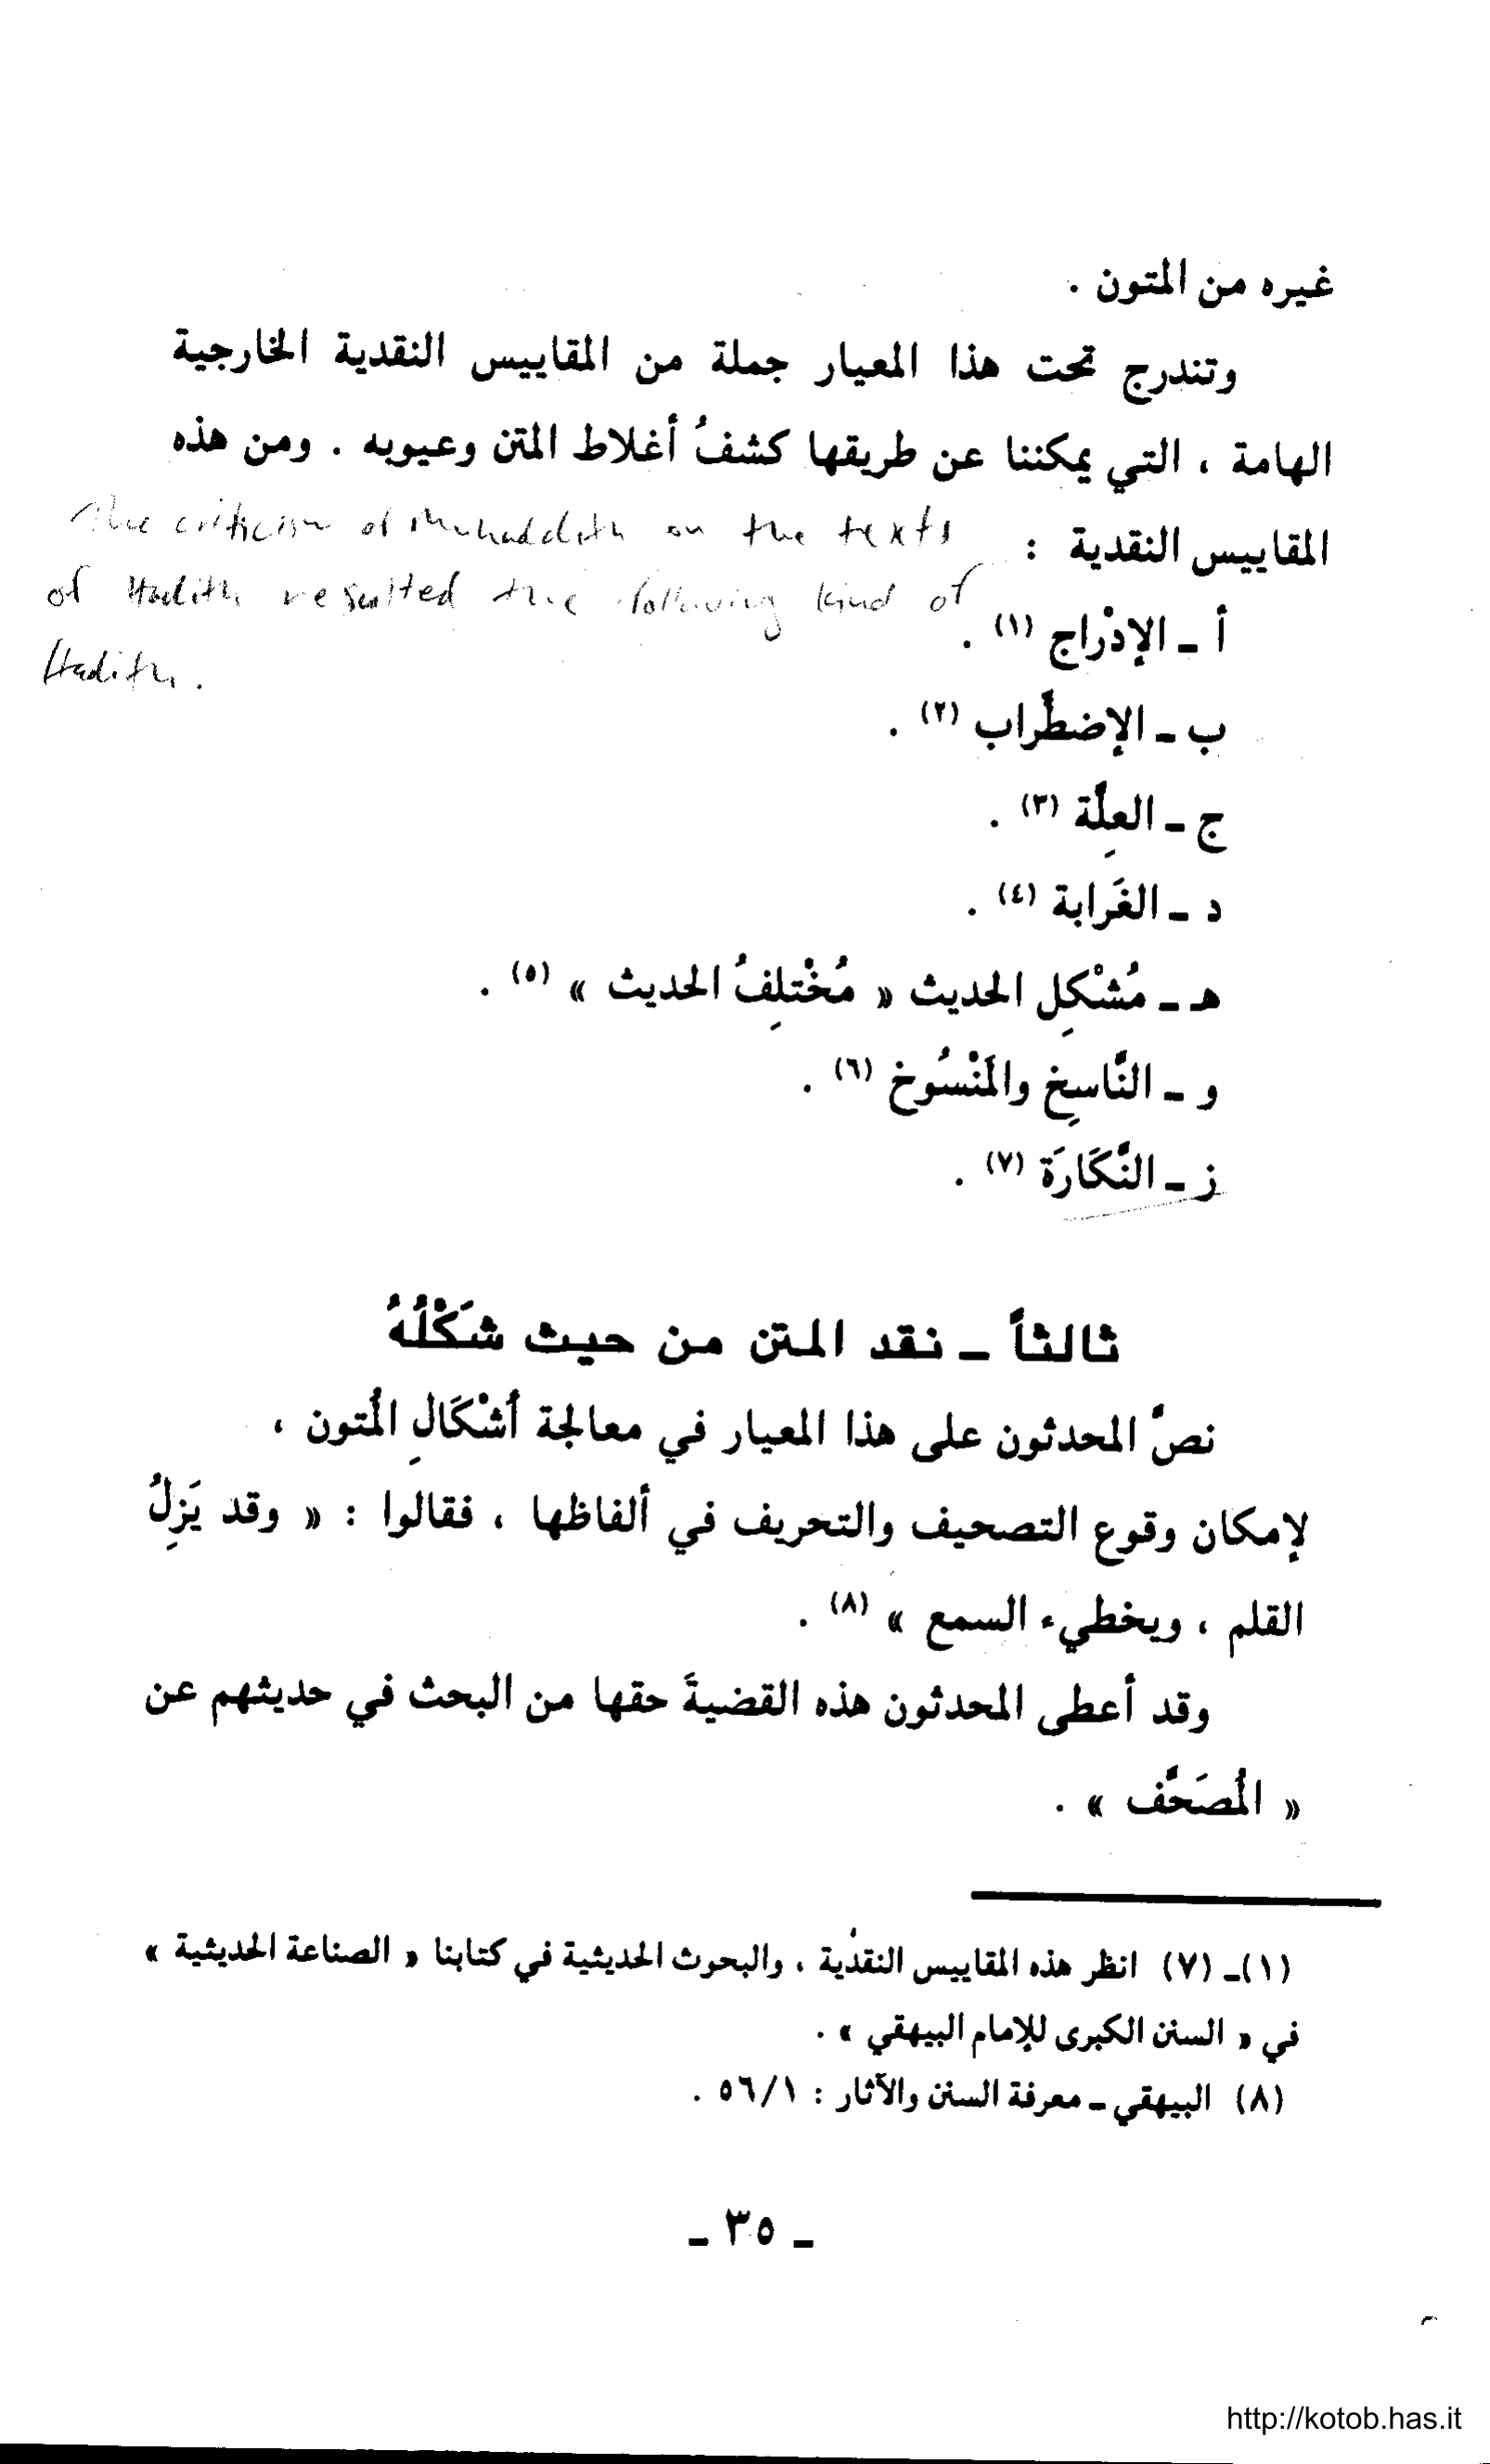 غيره من المتون .
وتندرج تحت هذا المعيار جملة من المقاييس النقدية الخارجية
الهامة ، التي يمكننا عن طريقها كشفُ أغلاط المتن وعيوبه . ومن هذه
المقاييس النقدية :
The criticism of Muhaddith on the texts
of Hadith resulted the following kind of
Hadith.
أ ـ الإدْراج (١) .
ب ـ الإضطَّراب (٢) .
ج ـ العِلَّة (٣) .
د ـ الغَرابة (٤) .
هـ ـ مُشْكِل الحديث « مُخْتلِفُ الحديث » (٥) .
و ـ النَّاسِخ والمَنْسُوخ (٦) .
ز ـ النَّكَارَة (٧) .
ثالثاً ـ نقد المتن من حيث شَكْلُهُ
نصَّ المحدثون على هذا المعيار في معالجة أَشْكَالِ المُتون ،
لإمكان وقوع التصحيف والتحريف في ألفاظها ، فقالوا : « وقد يَزِلُّ
القلم ، ويخطيء السمع » (٨) .
وقد أعطى المحدثون هذه القضيةَ حقها من البحث في حديثهم عن
« المُصَحَّف » .
(١)ـ (٧) انظر هذه المقاييس النقدية ، والبحوث الحديثية في كتابنا « الصناعة الحديثية »
في « السنن الكبرى للإمام البيهقي » .
(٨) البيهقي ـ معرفة السنن والآثار : ٥٦/١ .
ـ ٣٥ ـ
http://kotob.has.it